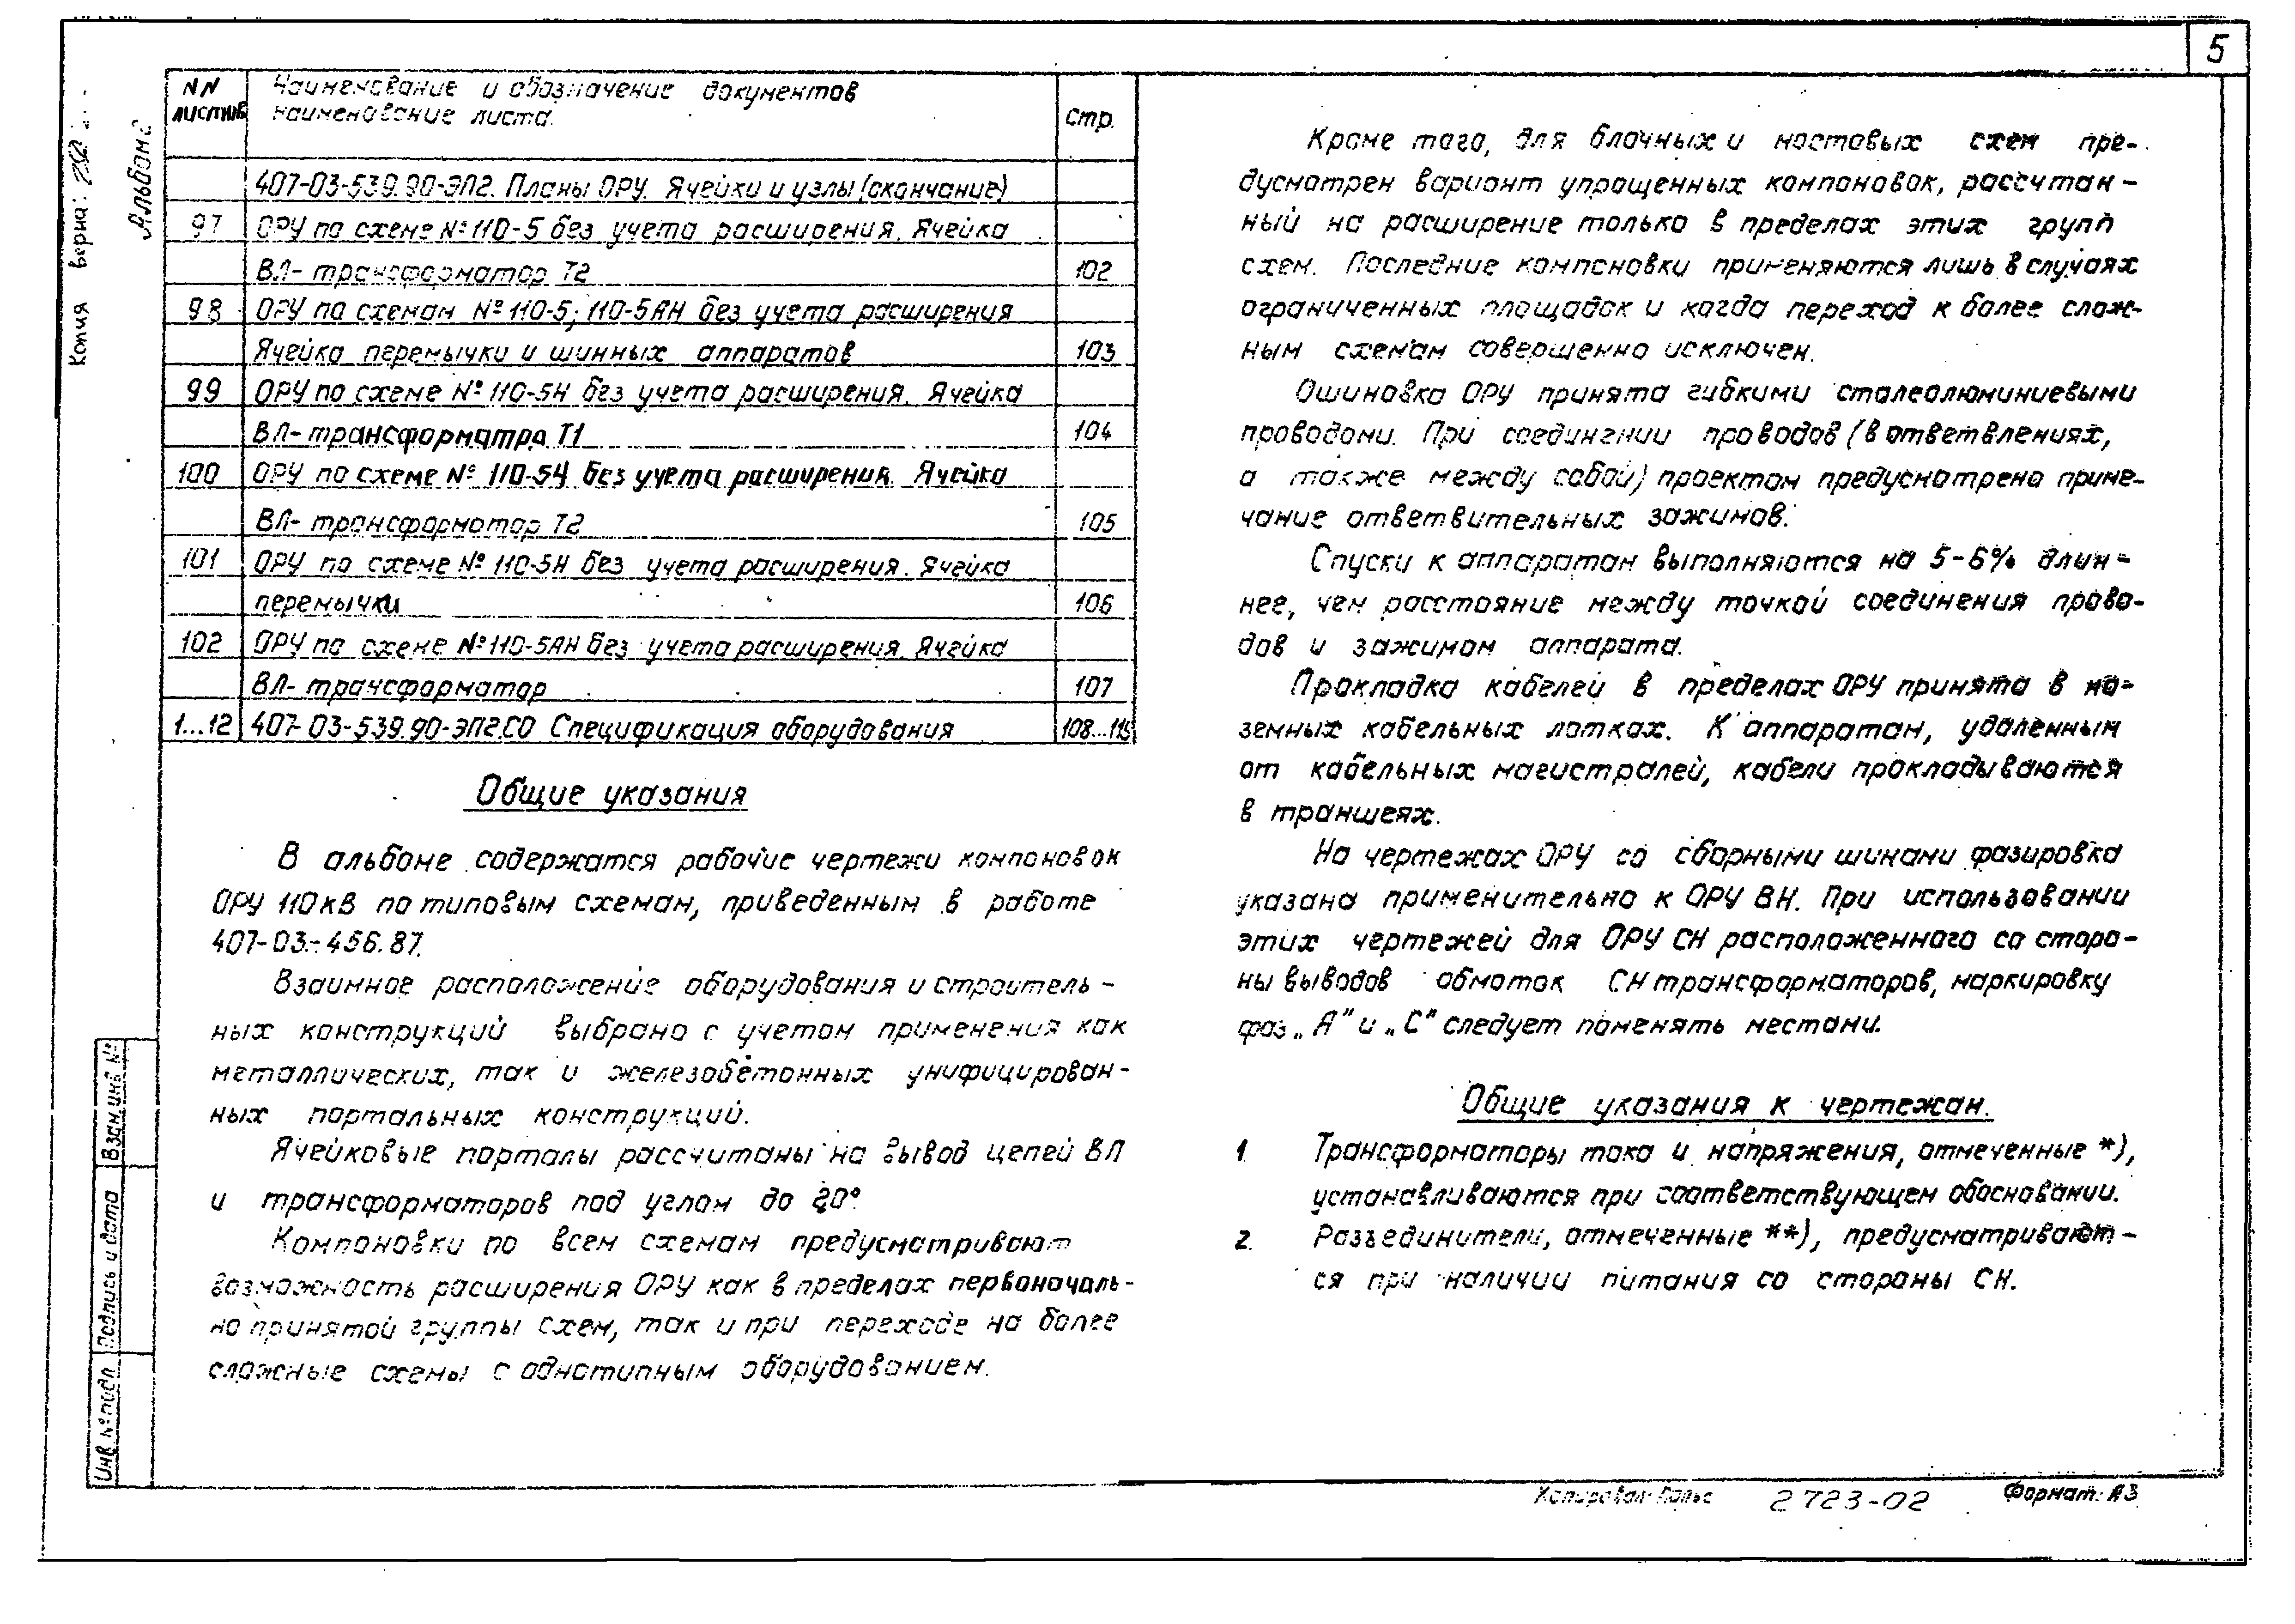 5
NN листов
Наименование и обозначение документов
наименование листа.
Стр.
407-03-539.90-ЭП2. Планы ОРУ. Ячейки и узлы (окончание)
97 ОРУ по схеме № 110-5 без учета расширения. Ячейка
ВЛ- трансформатор Т2 102
98 ОРУ по схемам № 110-5; 110-5АН без учета расширения
Ячейка перемычки и шинных аппаратов 103
99 ОРУ по схеме № 110-5Н без учета расширения. Ячейка
ВЛ- трансформатра Т1 104
100 ОРУ по схеме № 110-5Н без учета расширения. Ячейка
ВЛ- трансформатор Т2 105
101 ОРУ по схеме № 110-5Н без учета расширения. Ячейка
перемычки 106
102 ОРУ по схеме № 110-5АН без учета расширения. Ячейка
ВЛ- трансформатор 107
1...12 407-03-539.90-ЭП2.СО Спецификация оборудования 108...119
Общие указания
В альбоме содержатся рабочие чертежи компоновок
ОРУ 110 кВ по типовым схемам, приведенным в работе
407-03-456.87.
Взаимное расположение оборудования и строитель-
ных конструкций выбрано с учетом применения как
металлических, так и железобетонных унифицирован-
ных портальных конструкций.
Ячейковые порталы рассчитаны на вывод цепей ВЛ
и трансформаторов под углом до 20°.
Компоновки по всем схемам предусматривают
возможность расширения ОРУ как в пределах первоначаль-
но принятой группы схем, так и при переходе на более
сложные схемы с однотипным оборудованием.
Кроме того, для блочных и мостовых схем пре-
дусмотрен вариант упрощенных компоновок, рассчитан-
ный на расширение только в пределах этих групп
схем. Последние компоновки применяются лишь в случаях
ограниченных площадок и когда переход к более слож-
ным схемам совершенно исключен.
Ошиновка ОРУ принята гибкими сталеалюминиевыми
проводами. При соединении проводов (в ответвлениях,
а также между собой) проектом предусмотрено приме-
чание ответвительных зажимов.
Спуски к аппаратам выполняются на 5-6% длин-
нее, чем расстояние между точкой соединения прово-
дов и зажимом аппарата.
Прокладка кабелей в пределах ОРУ принята в на-
земных кабельных лотках. К аппаратам, удаленным
от кабельных магистралей, кабели прокладываются
в траншеях.
На чертежах ОРУ со сборными шинами фазировка
указана применительно к ОРУ ВН. При использовании
этих чертежей для ОРУ СН расположенного со сторо-
ны выводов обмоток СН трансформаторов, маркировку
фаз „А" и „С" следует поменять местами.
Общие указания к чертежам.
1. Трансформаторы тока и напряжения, отмеченные *),
устанавливаются при соответствующем обосновании.
2. Разъединители, отмеченные **), предусматривают-
ся при наличии питания со стороны СН.
Копия верна:
Альбом 2
Взам. инв. №
Подпись и дата
Инв. № подл
Копировал:
2723-02
Формат: А3